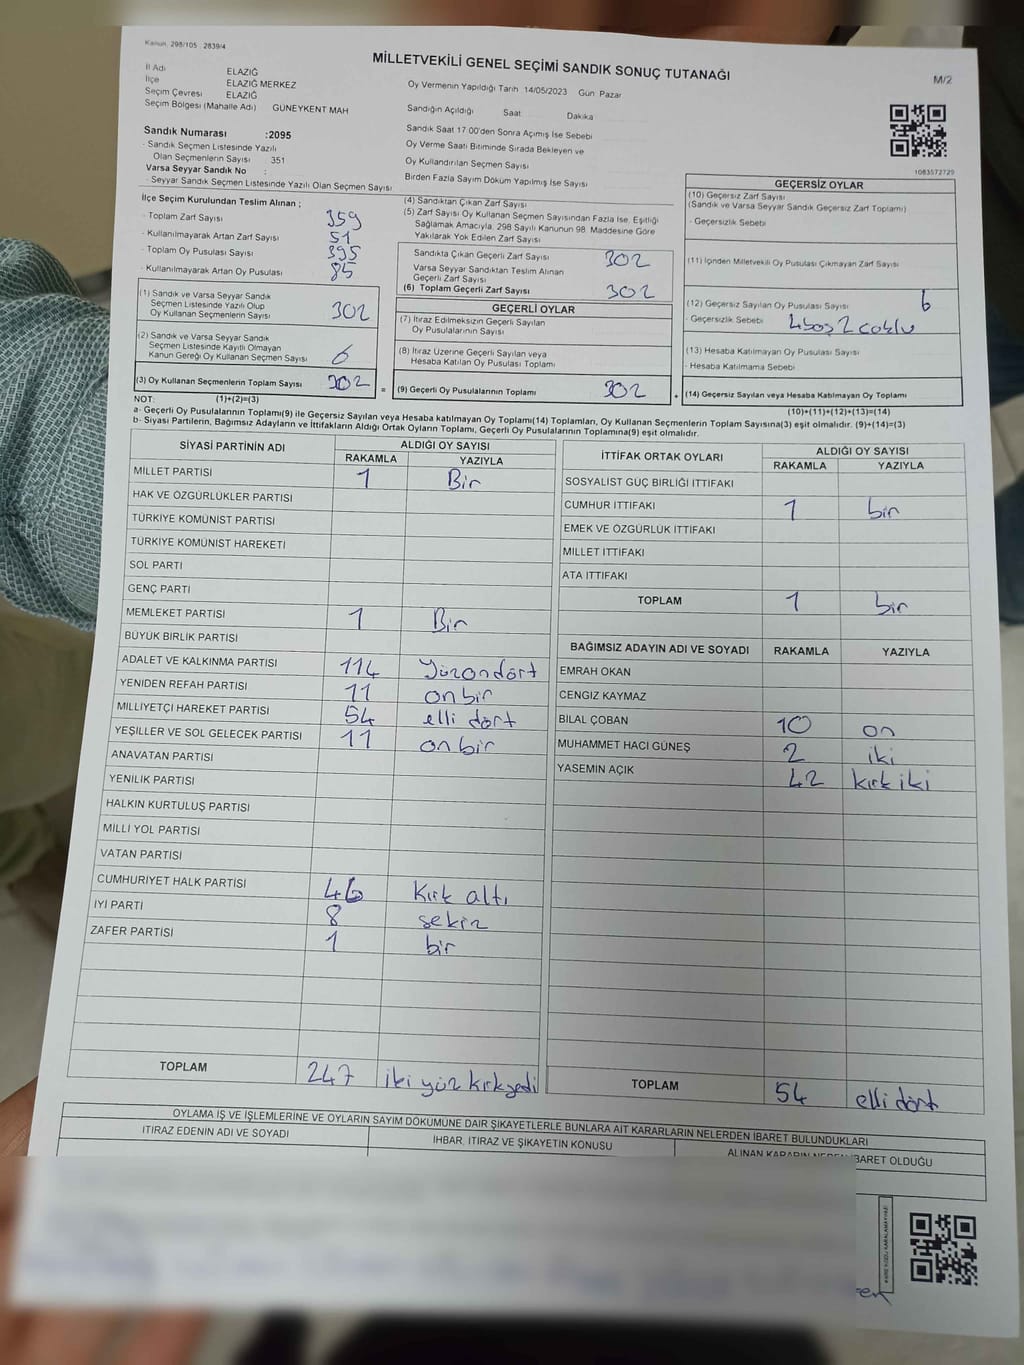 Kanun. 298/105 2839/4
MİLLETVEKİLİ GENEL SEÇİMİ SANDIK SONUÇ TUTANAĞI
M/2
İl Adı ELAZIĞ
İlçe ELAZIĞ MERKEZ
Seçim Çevresi ELAZIĞ
Seçim Bölgesi (Mahalle Adı) GÜNEYKENT MAH
Sandık Numarası :2095
- Sandık Seçmen Listesinde Yazılı
Olan Seçmenlerin Sayısı 351
Varsa Seyyar Sandık No :
- Seyyar Sandık Seçmen Listesinde Yazılı Olan Seçmen Sayısı
Oy Vermenin Yapıldığı Tarih 14/05/2023 Gün Pazar
Sandığın Açıldığı Saat Dakika
Sandık Saat 17 00'den Sonra Açımış İse Sebebi
Oy Verme Saati Bitiminde Sırada Bekleyen ve
Oy Kullandırılan Seçmen Sayısı
Birden Fazla Sayım Döküm Yapılmış İse Sayısı
1083572729
İlçe Seçim Kurulundan Teslim Alınan ;
- Toplam Zarf Sayısı 359
- Kullanılmayarak Artan Zarf Sayısı 51
- Toplam Oy Pusulası Sayısı 395
- Kullanılmayarak Artan Oy Pusulası 85
(1) Sandık ve Varsa Seyyar Sandık
Seçmen Listesinde Yazılı Olup
Oy Kullanan Seçmenlerin Sayısı 302
(2) Sandık ve Varsa Seyyar Sandık
Seçmen Listesinde Kayıtlı Olmayan
Kanun Gereği Oy Kullanan Seçmen Sayısı 6
(3) Oy Kullanan Seçmenlerin Toplam Sayısı 302 =
(4) Sandıktan Çıkan Zarf Sayısı
(5) Zarf Sayısı Oy Kullanan Seçmen Sayısından Fazla İse, Eşitliği
Sağlamak Amacıyla, 298 Sayılı Kanunun 98. Maddesine Göre
Yakılarak Yok Edilen Zarf Sayısı
Sandıkta Çıkan Geçerli Zarf Sayısı 302
Varsa Seyyar Sandıktan Teslim Alınan
Geçerli Zarf Sayısı
(6) Toplam Geçerli Zarf Sayısı 302
GEÇERLİ OYLAR
(7) İtiraz Edilmeksizin Geçerli Sayılan
Oy Pusulalarının Sayısı
(8) İtiraz Üzerine Geçerli Sayılan veya
Hesaba Katılan Oy Pusulası Toplamı
(9) Geçerli Oy Pusulalarının Toplamı 302 +
GEÇERSİZ OYLAR
(10) Geçersiz Zarf Sayısı
(Sandık ve Varsa Seyyar Sandık Geçersiz Zarf Toplamı)
- Geçersizlik Sebebi
(11) İçinden Milletvekili Oy Pusulası Çıkmayan Zarf Sayısı
(12) Geçersiz Sayılan Oy Pusulası Sayısı 6
- Geçersizlik Sebebi 4 boş 2 çoklu
(13) Hesaba Katılmayan Oy Pusulası Sayısı
- Hesaba Katılmama Sebebi
(14) Geçersiz Sayılan veya Hesaba Katılmayan Oy Toplamı
NOT: (1)+(2)=(3) (10)+(11)+(12)+(13)=(14)
a- Geçerli Oy Pusulalarının Toplamı(9) ile Geçersiz Sayılan veya Hesaba katılmayan Oy Toplamı(14) Toplamları, Oy Kullanan Seçmenlerin Toplam Sayısına(3) eşit olmalıdır. (9)+(14)=(3)
b- Siyasi Partilerin, Bağımsız Adayların ve İttifakların Aldığı Ortak Oyların Toplamı, Geçerli Oy Pusulalarının Toplamına(9) eşit olmalıdır.
SİYASİ PARTİNİN ADI ALDIĞI OY SAYISI
RAKAMLA YAZIYLA
MİLLET PARTİSİ 1 Bir
HAK VE ÖZGÜRLÜKLER PARTİSİ
TÜRKİYE KOMÜNİST PARTİSİ
TÜRKİYE KOMÜNİST HAREKETİ
SOL PARTİ
GENÇ PARTİ
MEMLEKET PARTİSİ 1 Bir
BÜYÜK BİRLİK PARTİSİ
ADALET VE KALKINMA PARTİSİ 114 Yüzondört
YENİDEN REFAH PARTİSİ 11 onbir
MİLLİYETÇİ HAREKET PARTİSİ 54 elli dört
YEŞİLLER VE SOL GELECEK PARTİSİ 11 on bir
ANAVATAN PARTİSİ
YENİLİK PARTİSİ
HALKIN KURTULUŞ PARTİSİ
MİLLİ YOL PARTİSİ
VATAN PARTİSİ
CUMHURİYET HALK PARTİSİ 46 Kırk altı
İYİ PARTİ 8 sekiz
ZAFER PARTİSİ 1 bir
TOPLAM 247 iki yüz kırkyedi
İTTİFAK ORTAK OYLARI ALDIĞI OY SAYISI
RAKAMLA YAZIYLA
SOSYALİST GÜÇ BİRLİĞİ İTTİFAKI
CUMHUR İTTİFAKI 1 bir
EMEK VE ÖZGÜRLÜK İTTİFAKI
MİLLET İTTİFAKI
ATA İTTİFAKI
TOPLAM 1 bir
BAĞIMSIZ ADAYIN ADI VE SOYADI RAKAMLA YAZIYLA
EMRAH OKAN
CENGİZ KAYMAZ
BİLAL ÇOBAN 10 on
MUHAMMET HACI GÜNEŞ 2 iki
YASEMİN AÇIK 42 kırk iki
TOPLAM 54 elli dört
OYLAMA İŞ VE İŞLEMLERİNE VE OYLARIN SAYIM DÖKÜMÜNE DAİR ŞİKAYETLERLE BUNLARA AİT KARARLARIN NELERDEN İBARET BULUNDUKLARI
İTİRAZ EDENİN ADI VE SOYADI İHBAR, İTİRAZ VE ŞİKAYETİN KONUSU ALINAN KARARIN NEDEN İBARET OLDUĞU